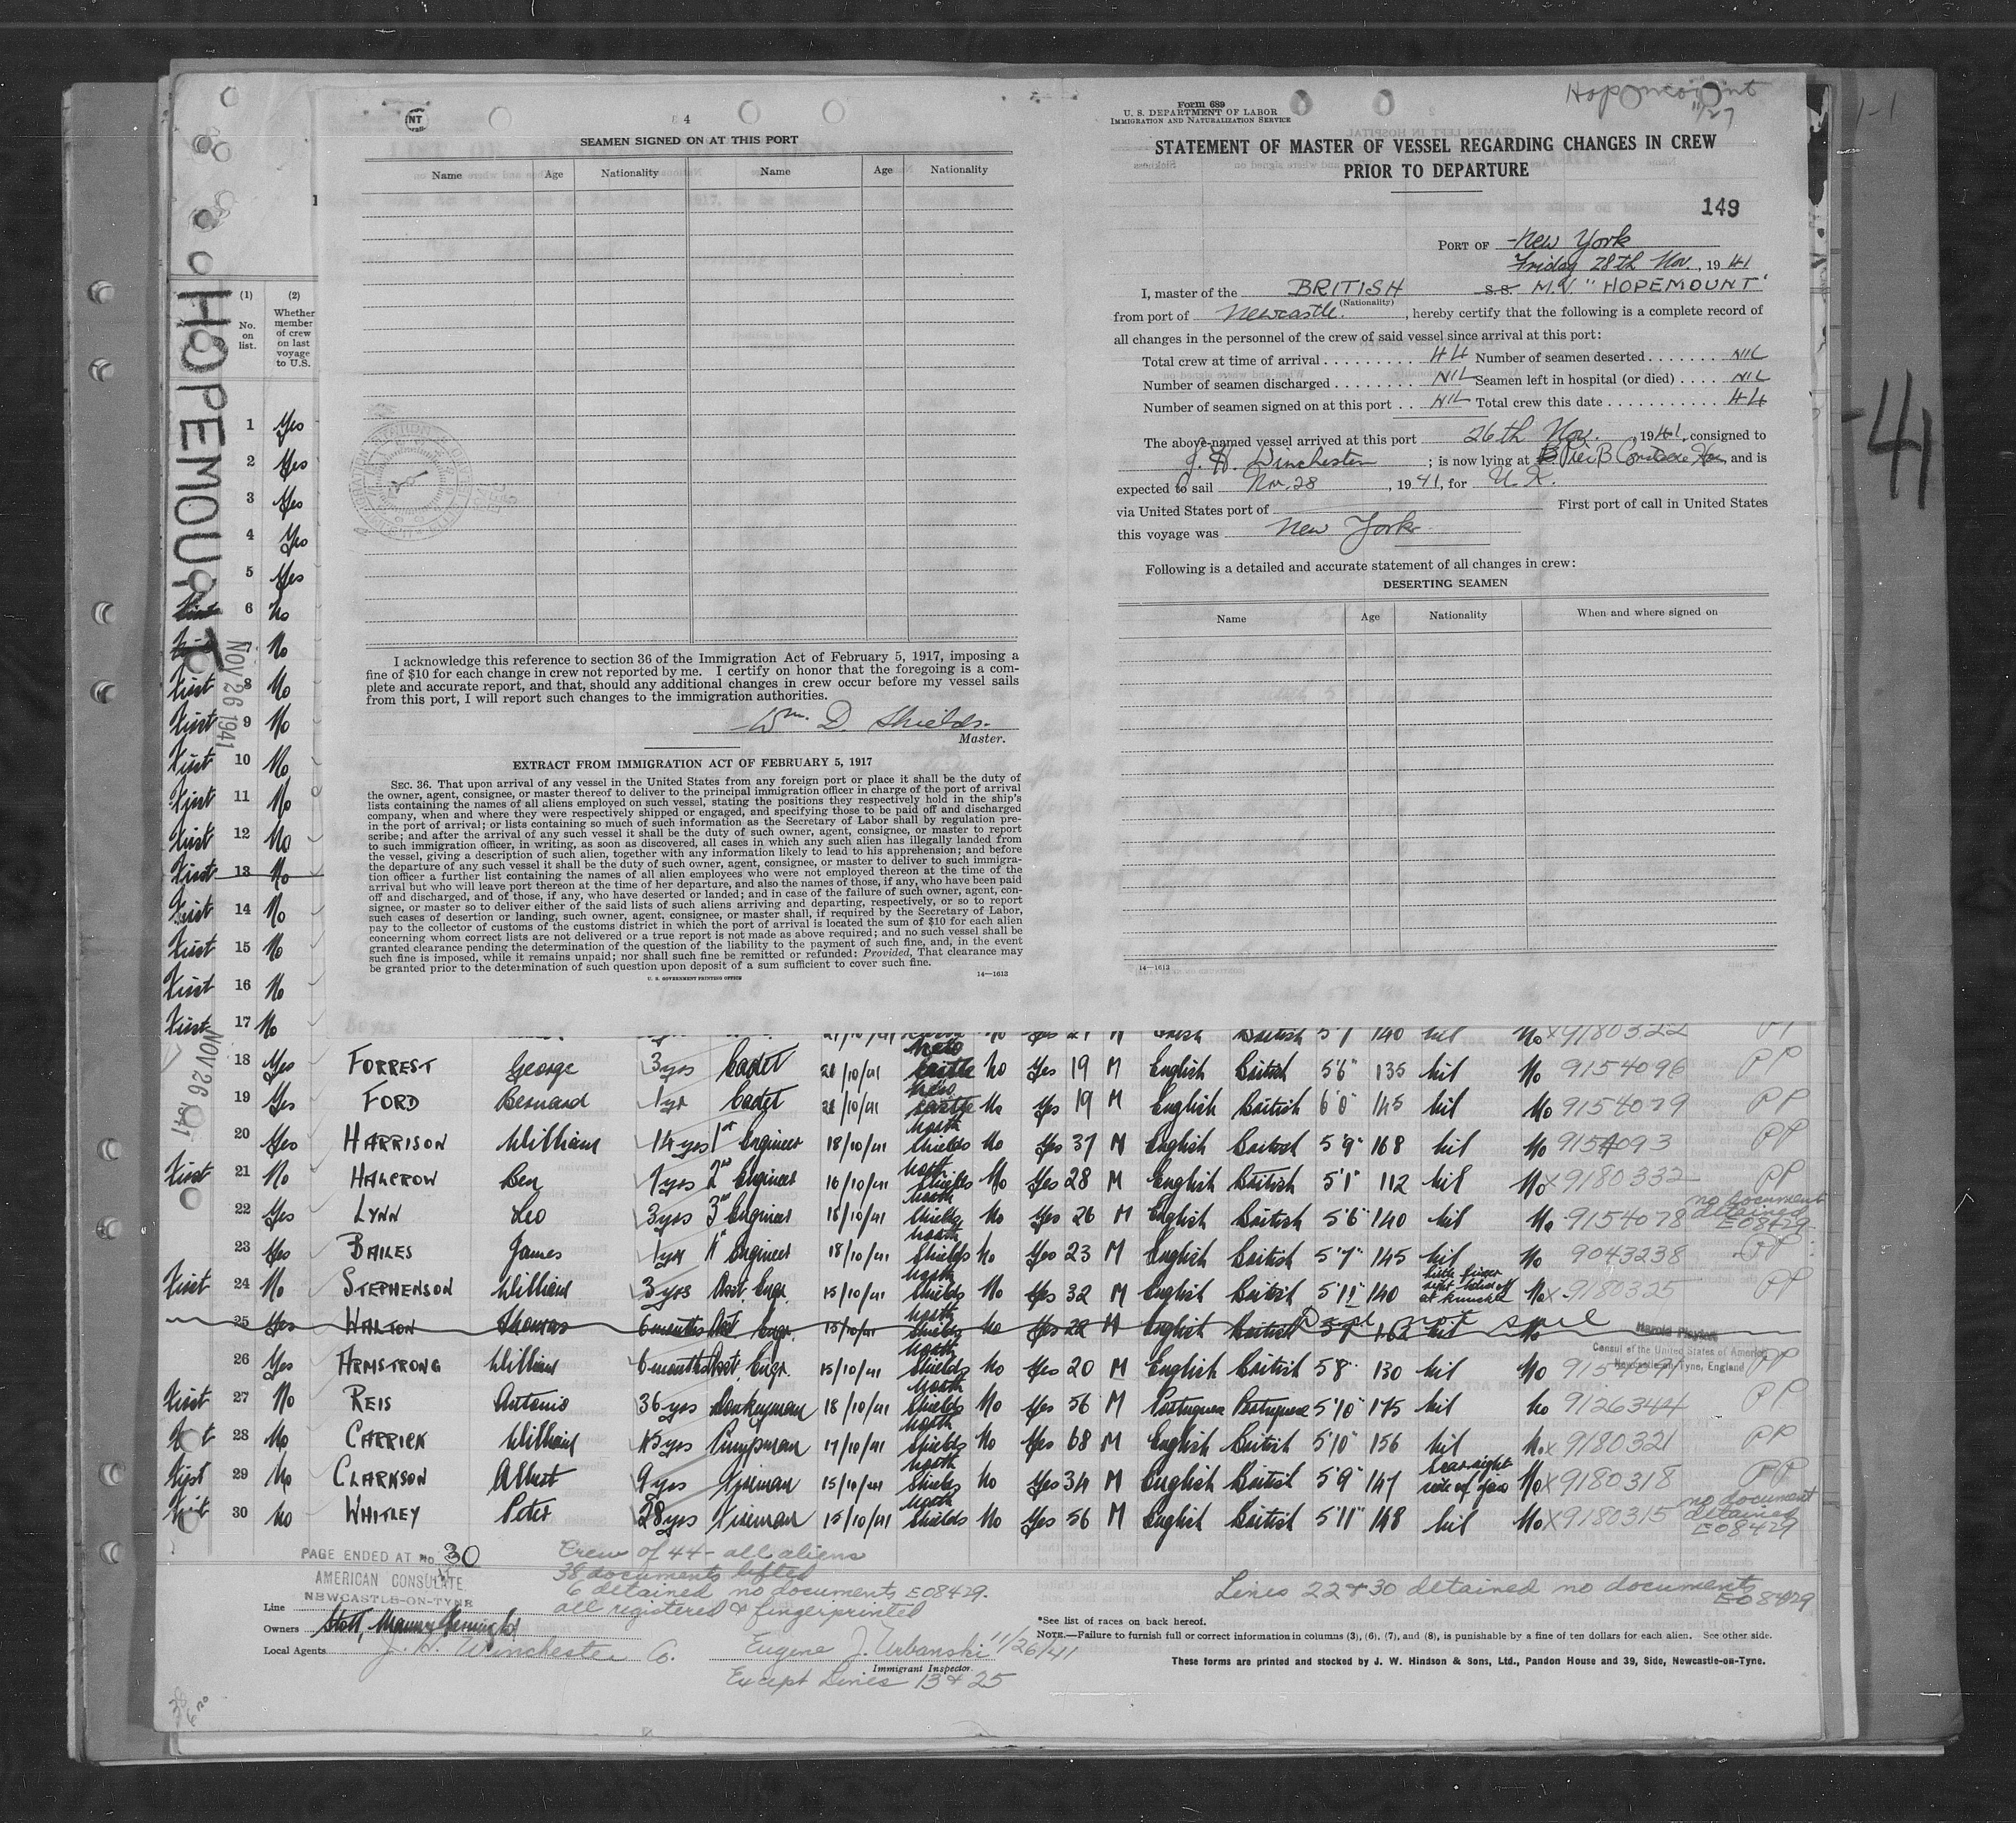 Hopemount
11/27
4
SEAMEN SIGNED ON AT THIS PORT
Name Age Nationality Name Age Nationality
I acknowledge this reference to section 36 of the Immigration Act of February 5, 1917, imposing a
fine of $10 for each change in crew not reported by me. I certify on honor that the foregoing is a com-
plete and accurate report, and that, should any additional changes in crew occur before my vessel sails
from this port, I will report such changes to the immigration authorities.
Wm. D. Shields.
Master.
EXTRACT FROM IMMIGRATION ACT OF FEBRUARY 5, 1917
SEC. 36. That upon arrival of any vessel in the United States from any foreign port or place it shall be the duty of
the owner, agent, consignee, or master thereof to deliver to the principal immigration officer in charge of the port of arrival
lists containing the names of all aliens employed on such vessel, stating the positions they respectively hold in the ship's
company, when and where they were respectively shipped or engaged, and specifying those to be paid off and discharged
in the port of arrival; or lists containing so much of such information as the Secretary of Labor shall by regulation pre-
scribe; and after the arrival of any such vessel it shall be the duty of such owner, agent, consignee, or master to report
to such immigration officer, in writing, as soon as discovered, all cases in which any such alien has illegally landed from
the vessel, giving a description of such alien, together with any information likely to lead to his apprehension; and before
the departure of any such vessel it shall be the duty of such owner, agent, consignee, or master to deliver to such immigra-
tion officer a further list containing the names of all alien employees who were not employed thereon at the time of the
arrival but who will leave port thereon at the time of her departure, and also the names of those, if any, who have been paid
off and discharged, and of those, if any, who have deserted or landed; and in case of the failure of such owner, agent, con-
signee, or master so to deliver either of the said lists of such aliens arriving and departing, respectively, or so to report
such cases of desertion or landing, such owner, agent, consignee, or master shall, if required by the Secretary of Labor,
pay to the collector of customs of the customs district in which the port of arrival is located the sum of $10 for each alien
concerning whom correct lists are not delivered or a true report is not made as above required; and no such vessel shall be
granted clearance pending the determination of the question of the liability to the payment of such fine, and, in the event
such fine is imposed, while it remains unpaid; nor shall such fine be remitted or refunded: Provided, That clearance may
be granted prior to the determination of such question upon deposit of a sum sufficient to cover such fine.
U. S. GOVERNMENT PRINTING OFFICE 14—1612
Form 689
U. S. DEPARTMENT OF LABOR
IMMIGRATION AND NATURALIZATION SERVICE
STATEMENT OF MASTER OF VESSEL REGARDING CHANGES IN CREW
PRIOR TO DEPARTURE
149
PORT OF New York
Friday 28th Nov., 1941
I, master of the BRITISH S.S. M.V. "HOPEMOUNT"
(Nationality)
from port of Newcastle, hereby certify that the following is a complete record of
all changes in the personnel of the crew of said vessel since arrival at this port:
Total crew at time of arrival 44 Number of seamen deserted NIL
Number of seamen discharged NIL Seamen left in hospital (or died) NIL
Number of seamen signed on at this port NIL Total crew this date 44
The above-named vessel arrived at this port 26th Nov., 1941, consigned to
J. H. Winchester; is now lying at Pier B and is
expected to sail Nov. 28, 1941, for U. K.
via United States port of First port of call in United States
this voyage was New York
Following is a detailed and accurate statement of all changes in crew:
DESERTING SEAMEN
Name Age Nationality When and where signed on
14—1612
-41
HOPEMOUNT
NOV 26 1941
(1) (2)
No. on list. Whether member of crew on last voyage to U.S.
1 Yes
2 Yes
3 Yes
4 Yes
5 Yes
6 No
7 No
First 8 No
First 9 No
First 10 No
First 11 No
First 12 No
First 13 No
First 14 No
First 15 No
First 16 No
First 17 No British 5'7 140 nil No x9180322 PP
NOV 26 1941
18 Yes FORREST George 3yrs Cadet 21/10/41 Newcastle No Yes 19 M English British 5'6" 135 nil No 9154096 PP
19 Yes FORD Bernard 1yr Cadet 21/10/41 Newcastle No Yes 19 M English British 6'0" 145 nil No 9154079 PP
20 Yes HARRISON William 14yrs 1st Engineer 18/10/41 North Shields No Yes 37 M English British 5'9" 168 nil No 9154093 PP
First 21 No HALCROW Ben 7yrs 2nd Engineer 16/10/41 North Shields No Yes 28 M English British 5'1" 112 nil No x9180332 PP
22 Yes LYNN Leo 3yrs 3rd Engineer 18/10/41 North Shields No Yes 26 M English British 5'6" 140 nil No 9154078 no document detained E08429
23 Yes BAILES James 1yr 4th Engineer 18/10/41 North Shields No Yes 23 M English British 5'7" 145 nil No 9043238 PP
First 24 No STEPHENSON William 3yrs Asst. Engr. 15/10/41 North Shields No Yes 32 M English British 5'11" 140 little finger right hand off at knuckle No x9180325 PP
25 Yes WALTON Thomas 6 months Asst Engr. 15/10/41 North Shields No Yes 22 M English British 5'9" 162 nil No Did not sail
Harold Playter
Consul of the United States of America
Newcastle-on-Tyne, England
26 Yes ARMSTRONG William 6 months Asst. Engr. 15/10/41 North Shields No Yes 20 M English British 5'8" 130 nil No PP
First 27 No REIS Antonio 36yrs Donkeyman 18/10/41 North Shields No Yes 56 M Portuguese Portuguese 5'10" 175 nil No 9126344 PP
First 28 No CARRICK William 45yrs Pumpman 17/10/41 North Shields No Yes 68 M English British 5'10" 156 nil No x9180321 PP
First 29 No CLARKSON Albert 9yrs Fireman 15/10/41 North Shields No Yes 34 M English British 5'9" 147 Scar right side of jaw No x9180318 PP
First 30 No WHITLEY Peter 28yrs Fireman 15/10/41 North Shields No Yes 56 M English British 5'11" 148 nil No x9180315 no document detained E08429
PAGE ENDED AT NO 30
AMERICAN CONSULATE
NEWCASTLE-ON-TYNE
Crew of 44 - all aliens
38 documents lifted
6 detained no documents E08429.
all registered & fingerprinted
Lines 22 & 30 detained no documents
E08429
Line
Owners Stott, Mann & Fleming Ltd
Local Agents J. H. Winchester Co.
Eugene J. Urbanski 11/26/41
Immigrant Inspector.
Except Lines 13 & 25
*See list of races on back hereof.
NOTE.—Failure to furnish full or correct information in columns (3), (6), (7), and (8), is punishable by a fine of ten dollars for each alien. See other side.
These forms are printed and stocked by J. W. Hindson & Sons, Ltd., Pandon House and 39, Side, Newcastle-on-Tyne.